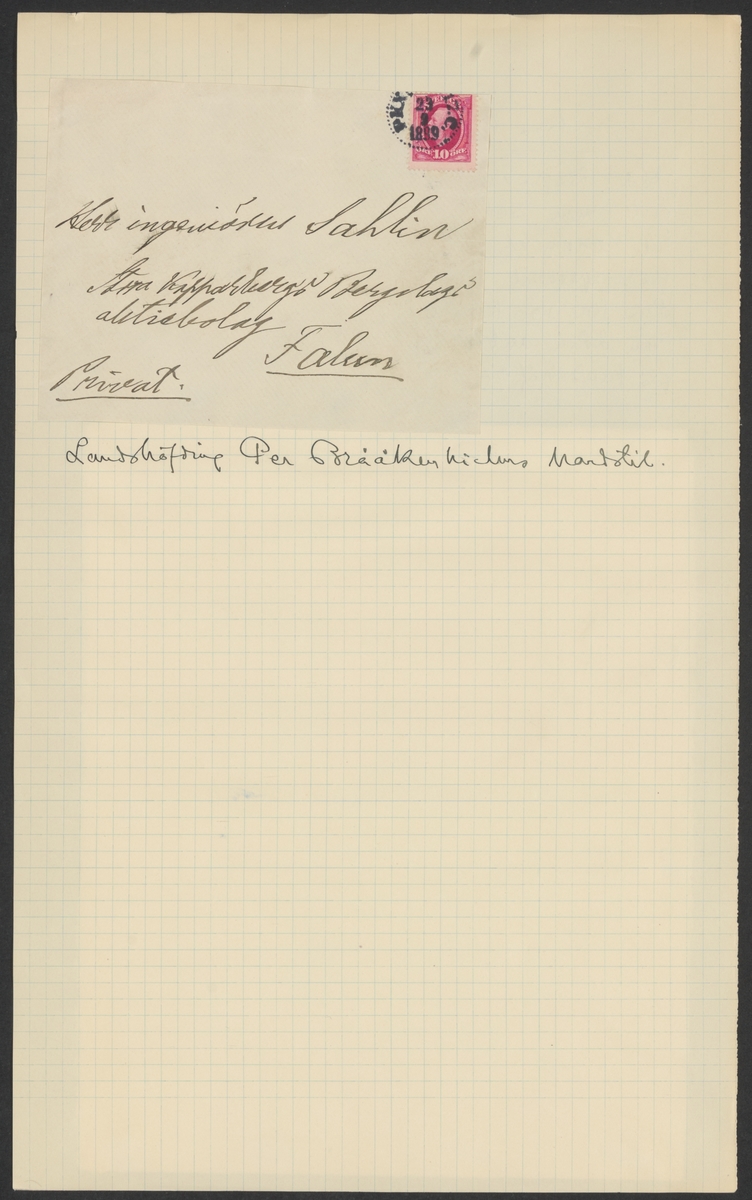 23
1899
10 ÖRE
Herr ingeniören Sahlin
Stora Kopparbergs Bergslags
aktiebolag
Falun
Privat.
Landshöfding Per handstil.